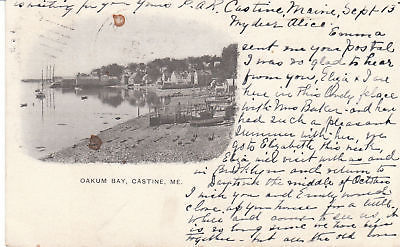 waiting for you. Yours P.A.R. Castine, Maine, Sept 15
My dear Alice.
Emma
sent me your postal
I was so glad to hear
from you, Eliza & I are
here in this lovely place
with Mrs Baker and have
had such a pleasant
summer with her, we
go to Elizabeth this week,
Eliza will visit with us and in
Brooklyn and return to
the middle of October
I wish you and Emily would
close up your house for a little
while and come to see us, it
is so long since we have been
together - but all the old love
OAKUM BAY, CASTINE, ME.